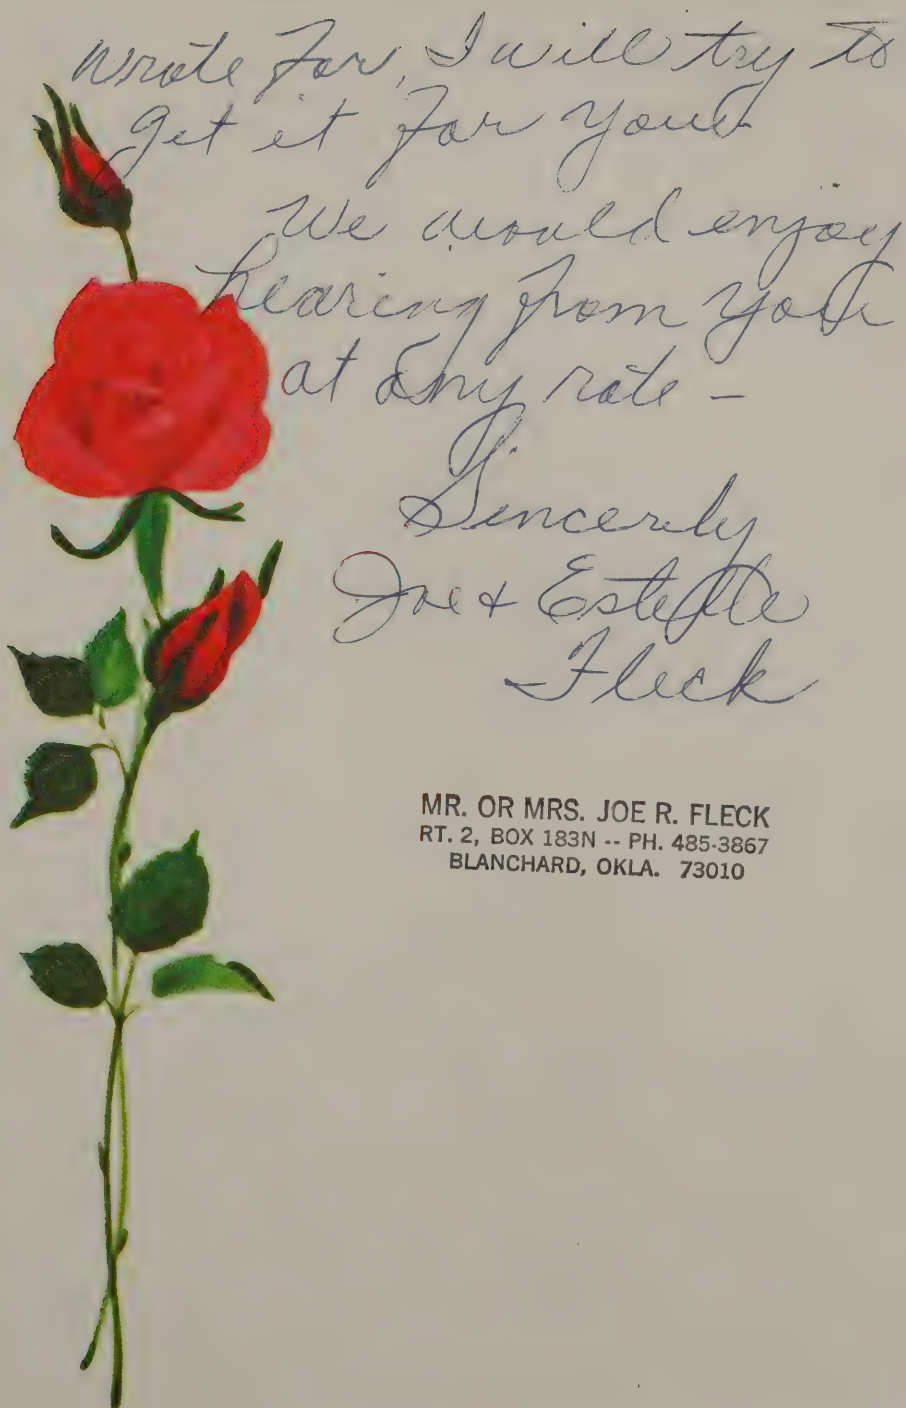 wrote for, I will try to
get it for you.
We would enjoy
hearing from you
at any rate -
Sincerly
Joe & Estelle
Fleck
MR. OR MRS. JOE R. FLECK
RT. 2, BOX 183N -- PH. 485-3867
BLANCHARD, OKLA. 73010